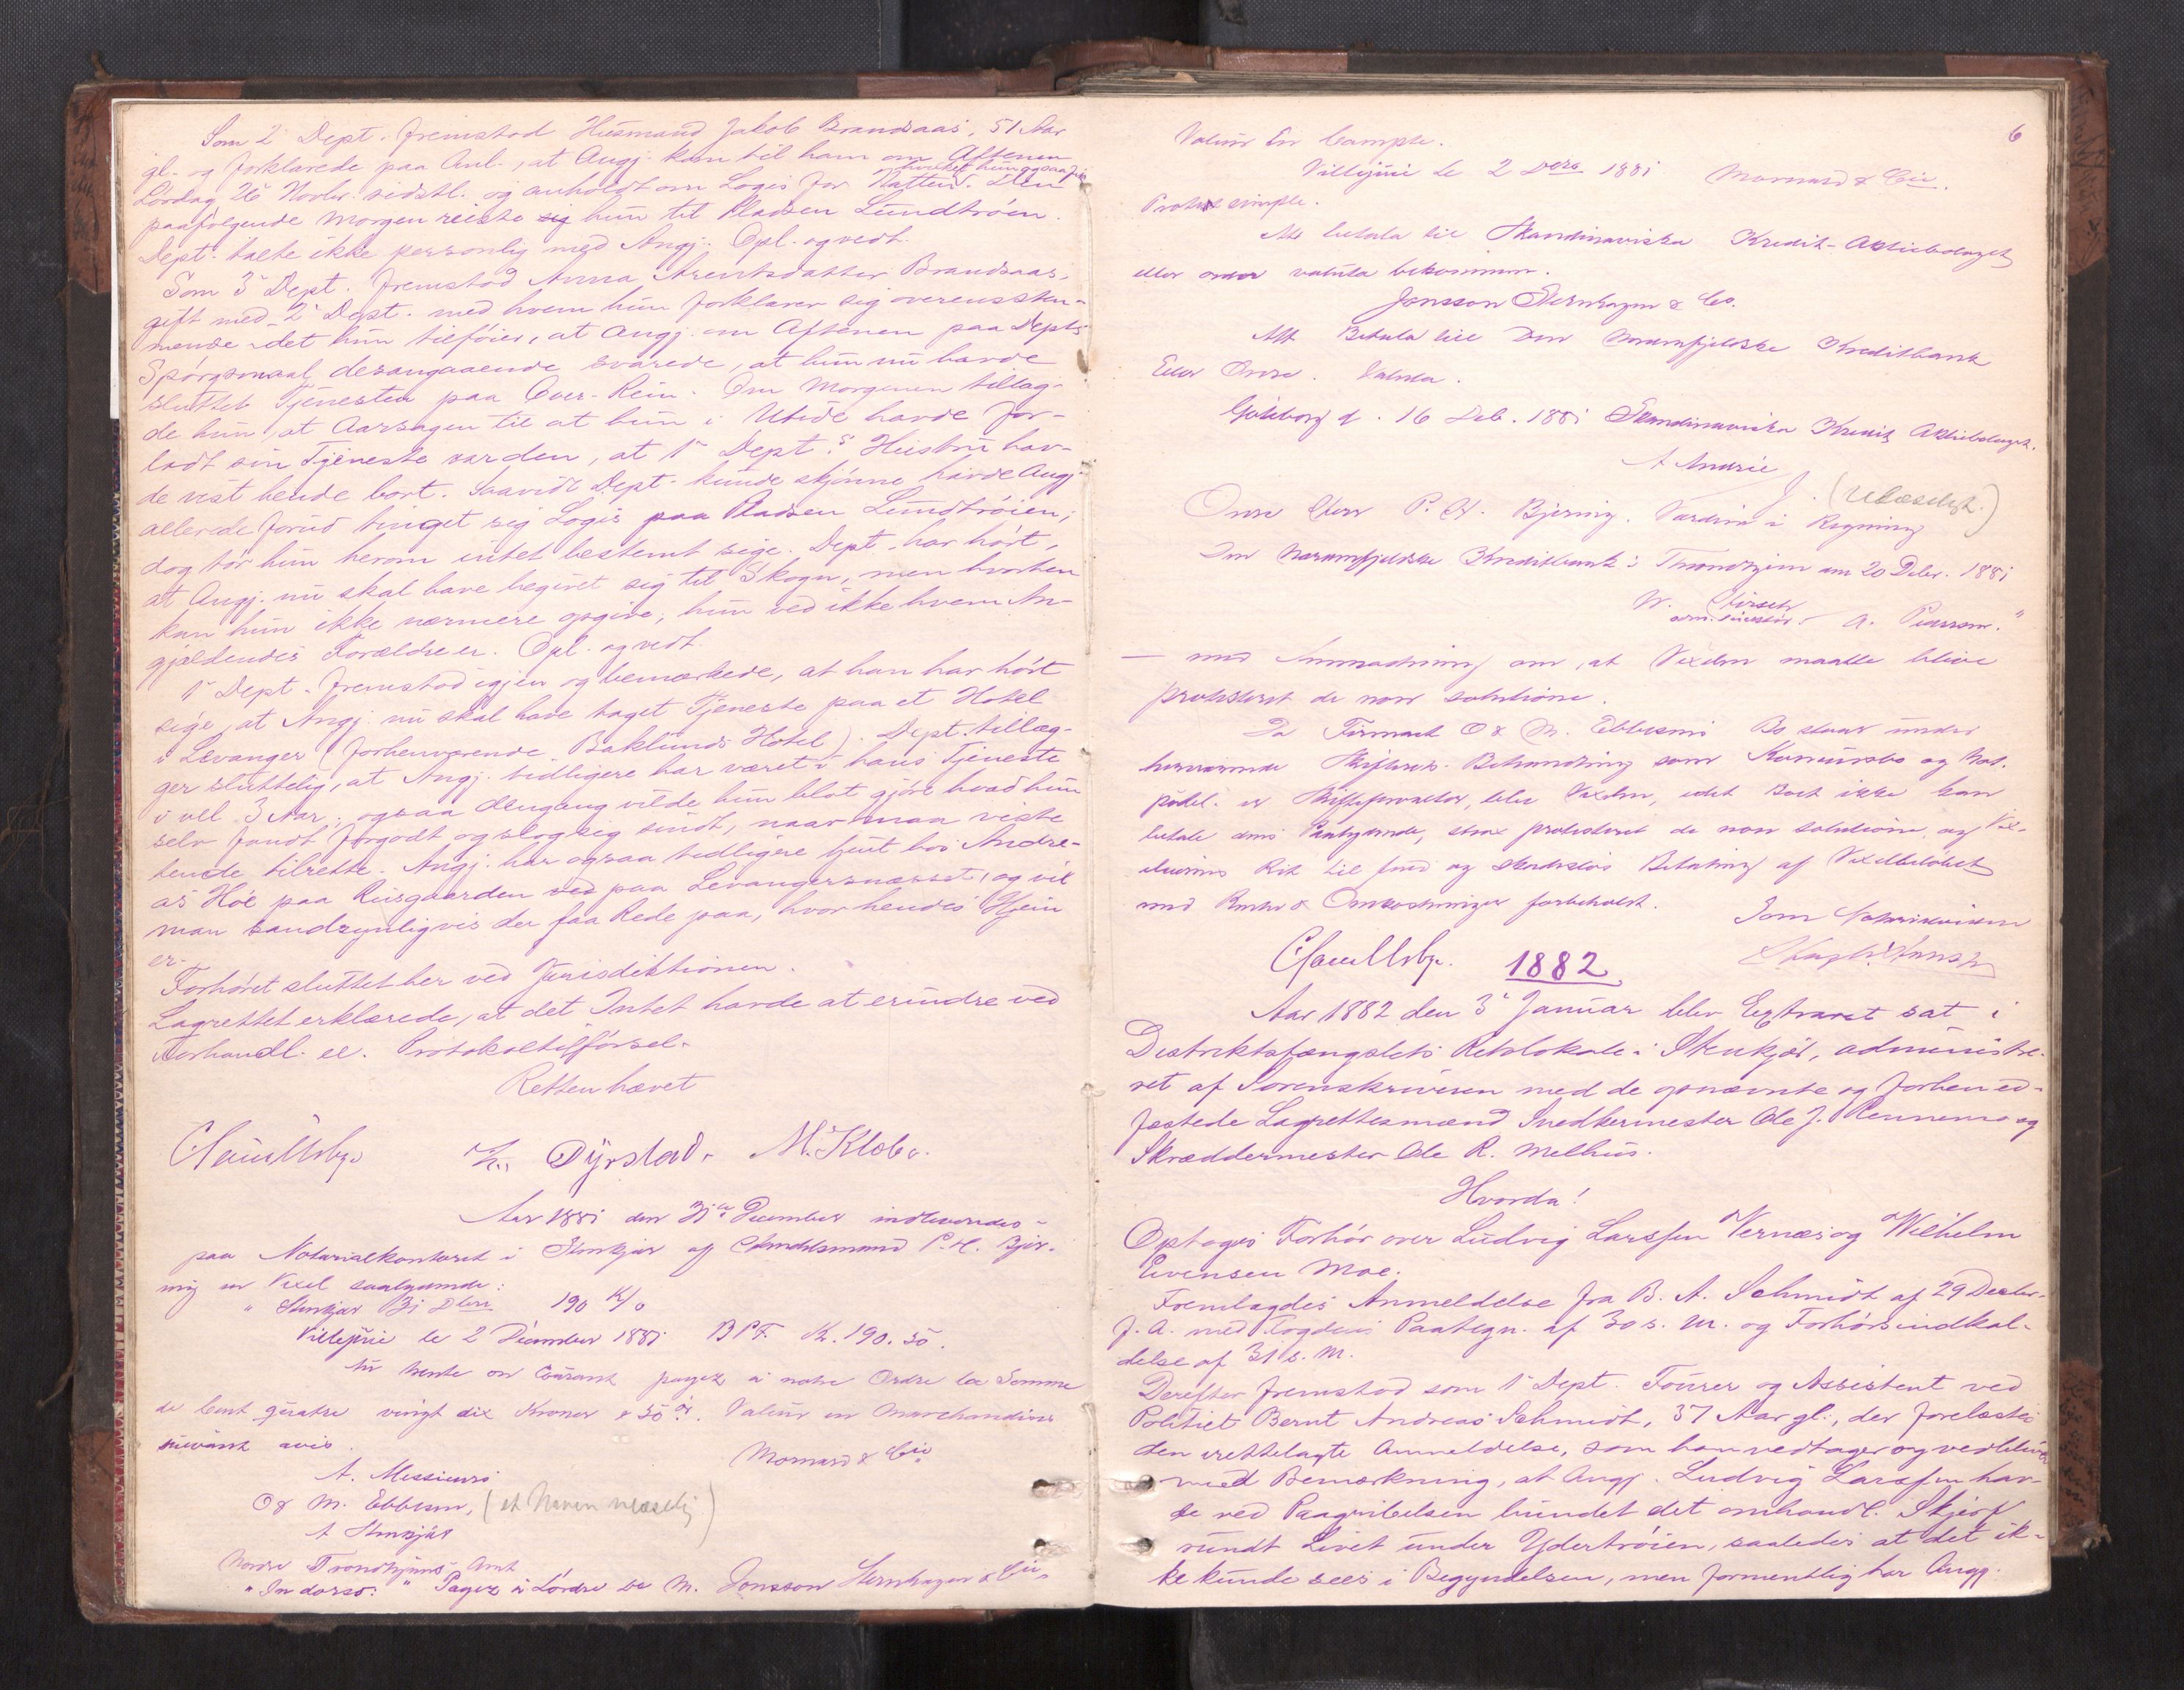 Som 2' Dept. fremstod Husmand Jakob Brandsaas, 51 Aar
gl. og forklarede paa Anl., at Angj. kom til ham om Aftenen
Lørdag 26' Novbr. sidstl. og anholdt om Logis for Natten, hvilket hun ogsaa fik. Den
paafølgende Morgen reiste sig hun til Pladsen Lundtrøen.
Dept. talte ikke personlig med Angj. Opl. og vedt.
Som 3' Dept. fremstod Anna Arentsdatter Brandsaas,
gift med 2' Dept. med hvem hun forklarer sig overensstem-
mende idet hun tilføier, at Angj. om Aftenen paa Depts
Spørgsmaal desangaaende svarede, at hun nu havde
sluttet Tjenesten paa Over-Rein. Om Morgenen tillag-
de hun, at Aarsagen til at hun i Utide havde for-
ladt sin Tjeneste var den, at 1' Dept.s Hustru hav-
de vist hende bort. Saavidt Dept. kunde skjønne havde Angj.
allerede forud tinget sig Logis paa Pladsen Lundtrøien;
dog tør hun herom intet bestemt sige. Dept. har hørt,
at Angj. nu skal have begivet sig til Skogn, men hvorhen
kan hun ikke nærmere opgive, hun ved ikke hvem An-
gjældendes Forældre er. Opl. og vedt.
1' Dept. fremstod igjen og bemærkede, at han har hørt
sige, at Angj. nu skal have taget Tjeneste paa et Hotel
i Levanger (forhenværende Baklunds Hotel). Dept. tillæg-
ger sluttelig, at Angj. tidligere har været i hans Tjeneste
i vel 3 Aar; ogsaa dengang vilde hun blot gjøre hvad hun
selv fandt forgodt og slog sig sindt, naar man viste
hende tilrette. Angj. har ogsaa tidligere tjent hos Andre-
as Høe paa Ruisgaarden ved paa Levangernæsset, og vil
man sandsynligvis der faa Rede paa, hvor hendes Hjem
er.
Forhøret sluttet her ved Jurisdiktionen.
Lagrettet erklærede, at det Intet havde at erindre ved
Forhandl. el. Protokoltilførsel.
Retten hævet
Dyrstad. M. Klobo.
Aar 1881 den 31te December indleveredes
paa Notarialkontoret i Stenkjær af Handelsmand P. H. Bjer-
ing en Vexel saalydende:
" Stenkjær 31 Dbre " 190 K/o
Villejuie le 2 Decembre 1881 BPF. Kr. 190.50.
Au trente en Courant payez à notre Ordre la Somme
de Cent quatre vingt dix Kroner & 50 ør. Valeur en Marchandises
suivant avis.
Mornard & Cie
A. Messieurs
O & M. Ebbesen, (et Navn ulæselig)
A Stenkjær
Nordre Trondhjems Amt
" In dorso: " Payez à L'ordre de M. Jonsson Sternhagen & Cie.
6
Valeur En Compte.
Villejuie le 2 Dcre 1881 Mornard & Cie.
Protest simple.
Att betala till Skandinaviska Kredit-Aktiebolaget
eller order valuta bekommen.
Jonsson Sternhagen & Co.
Att Betala till Den Nordenfjeldske Kreditbank
Eller Order. Valuta.
Göteborg d. 16 Deb. 1881 Skandinaviska Kredit Aktiebolaget.
A Andrée
J. (Ulæseligt.)
Ordre Herr P. H. Bjering. Værdien i Regning
Den Nordenfjeldske Kreditbank: Trondhjem den 20 Debr. 1881
W. Hirsch
adm. Direktør. A. Pedersen."
— med Anmodning om, at Vexelen maatte blive
protesteret de non solutione.
Da Firmaet O & M. Ebbesens Bo staar under
herværende Skifterets Behandling som Konkursbo og Not.
publ. er Skifteforvalter, blev Vexelen, idet Boet ikke kan
betale dens Paalydende, strax protesteret de non solutione og Vex-
eleierens Ret til fuld og skadesløs Betaling af Vexelbeløbet
med Renter & Omkostninger forbeholdt.
Som Notarialvidne
1882
Aar 1882 den 3' Januar blev Extraret sat i
Distriktsfængslets Retslokale i Stenkjær, administre-
ret af Sorenskriveren med de opnævnte og forhen ed-
fæstede Lagrettesmænd Snedkermester Ole J. Rennemo og
Skræddermester Ole R. Melhus.
Hvorda!
Optoges Forhør over Ludvig Larssen Vernæs og Wilhelm
Evensen Moe.
Fremlagdes Anmeldelse fra B. A. Schmidt af 29 Decbr.
f. A. med Fogdens Paategn. af 30 s. M. og Forhørsindkal-
delse af 31 s. M.
Derefter fremstod som 1' Dept. Fourer og Assistent ved
Politiet Bernt Andreas Schmidt, 37 Aar gl., der forelæstes
den irettelagte Anmeldelse, som han vedtager og vedbliver
med Bemærkning, at Angj. Ludvig Larssen hav-
de ved Paagribelsen bundet det omhandl. Skjerf
rundt Livet under Ydertrøien, saaledes at det ik-
ke kunde sees i Begyndelsen, men formentlig har Angj.